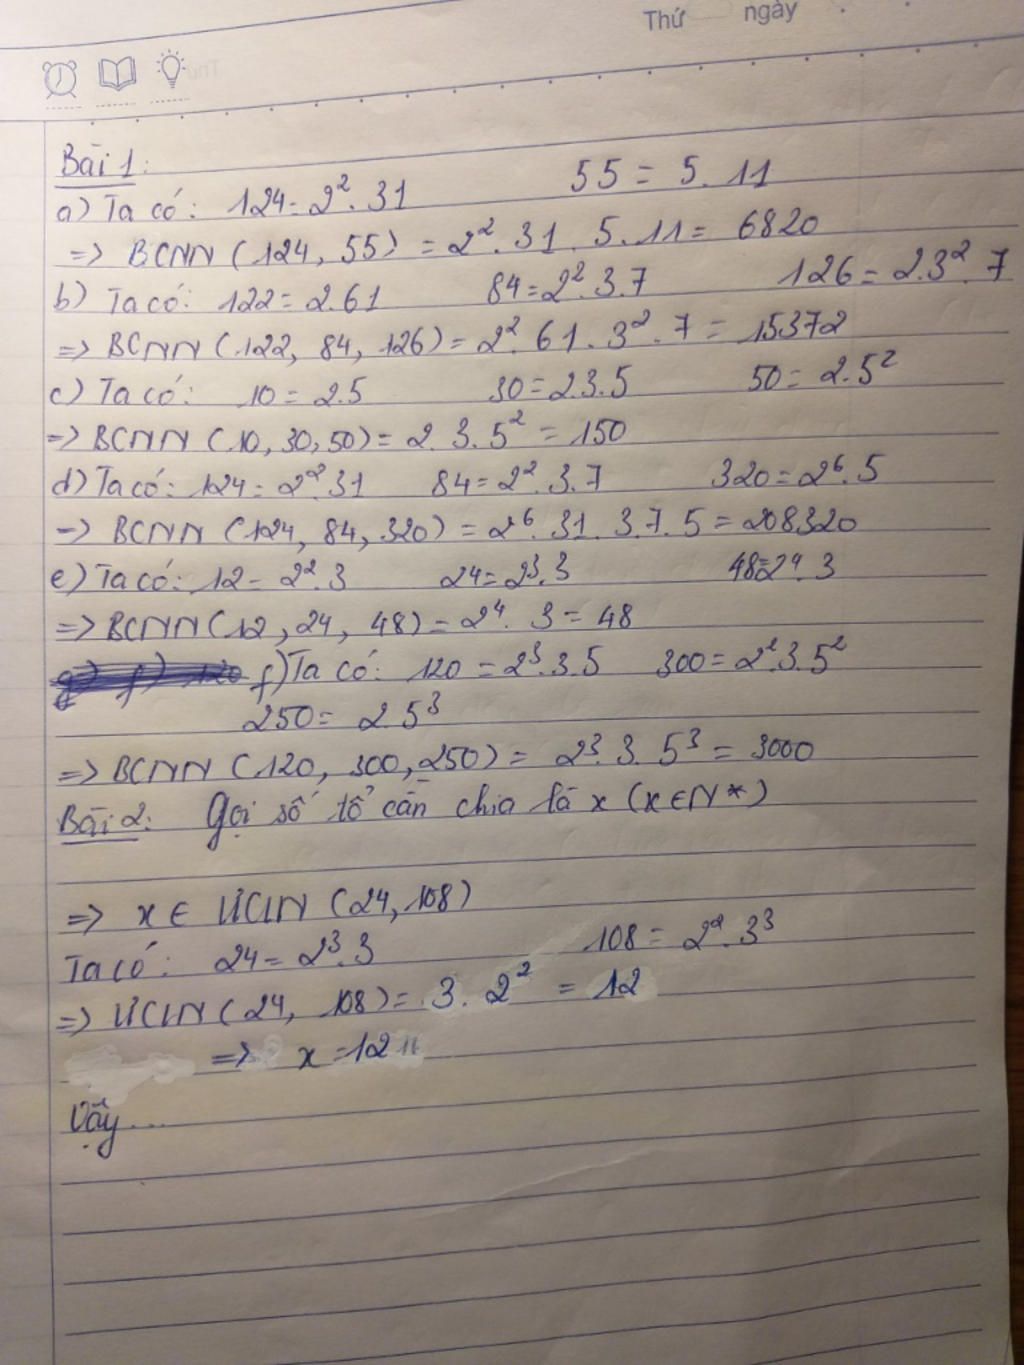 Thứ ngày
Bài 1:
a) Ta có: 124 = 2². 31 55 = 5. 11
=> BCNN (124, 55) = 2². 31. 5. 11 = 6820
b) Ta có: 122 = 2.61 84 = 2². 3. 7 126 = 2.3². 7
=> BCNN (122, 84, 126) = 2². 61. 3². 7 = 15372
c) Ta có: 10 = 2.5 30 = 2.3.5 50 = 2.5²
=> BCNN (10, 30, 50) = 2. 3. 5² = 150
d) Ta có: 124 = 2².31 84 = 2². 3. 7 320 = 2⁶. 5
=> BCNN (124, 84, 320) = 2⁶. 31. 3. 7. 5 = 208320
e) Ta có: 12 = 2². 3 24 = 2³. 3 48 = 2⁴. 3
=> BCNN (12, 24, 48) = 2⁴. 3 = 48
f) Ta có: 120 = 2³. 3. 5 300 = 2². 3. 5²
250 = 2. 5³
=> BCNN (120, 300, 250) = 2³. 3. 5³ = 3000
Bài 2: Gọi số tổ cần chia là x (x ∈ N*)
=> x ∈ ƯCLN (24, 108)
Ta có: 24 = 2³. 3 108 = 2². 3³
=> ƯCLN (24, 108) = 3. 2² = 12
=> x = 12
Vậy...